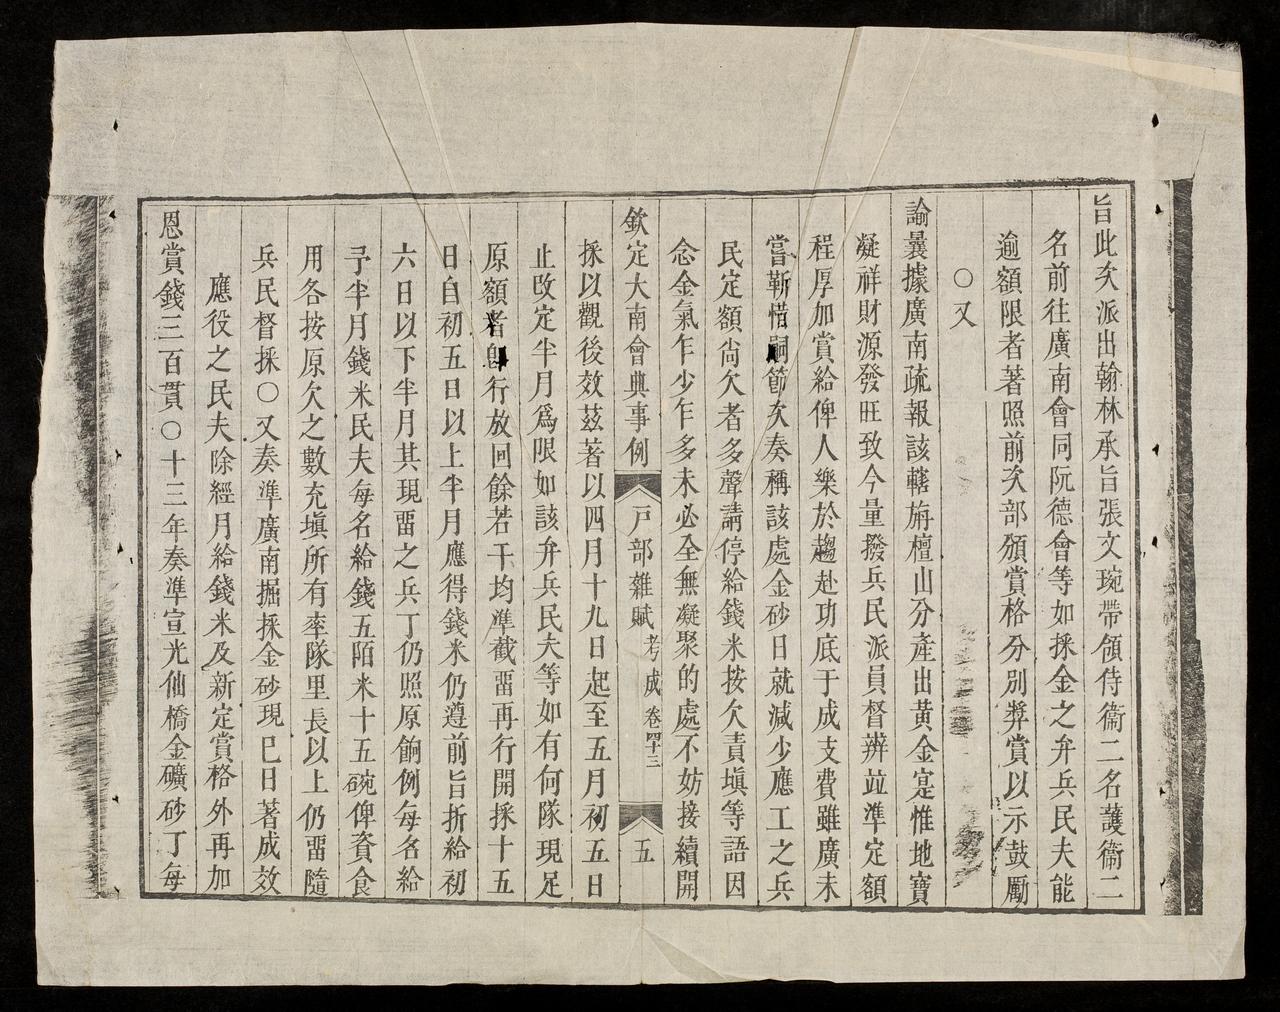 旨此次派出翰林承旨張文琬帶領侍衞二名護衞二
名前往廣南會同阮德會等如採金之弁兵民夫能
逾額限者著照前次部頒賞格分別奬賞以示鼓勵
○又
諭曩據廣南疏報該轄旃檀山分產出黃金寔惟地寶
凝祥財源發旺致今量撥兵民派員督辨竝準定額
程厚加賞給俾人樂於趨赴功底于成支費雖廣未
嘗靳惜嗣節次奏稱該處金砂日就減少應工之兵
民定額尚欠者多聲請停給錢米按欠責塡等語因
念金氣乍少乍多未必全無凝聚的處不妨接續開
欽定大南會典事例 戸部雜賦 考成 卷四十三 五
採以觀後效茲著以四月十九日起至五月初五日
止改定半月爲限如該弁兵民夫等如有何隊現足
原額者卽行放回餘若干均準截畱再行開採十五
日自初五日以上半月應得錢米仍遵前旨折給初
六日以下半月其現畱之兵丁仍照原餉例每名給
予半月錢米民夫每名給錢五陌米十五碗俾資食
用各按原欠之數充塡所有率隊里長以上仍畱隨
兵民督採○又奏準廣南掘採金砂現已日著成效
應役之民夫除經月給錢米及新定賞格外再加
恩賞錢三百貫○十三年奏準宣光仙橋金礦砂丁每